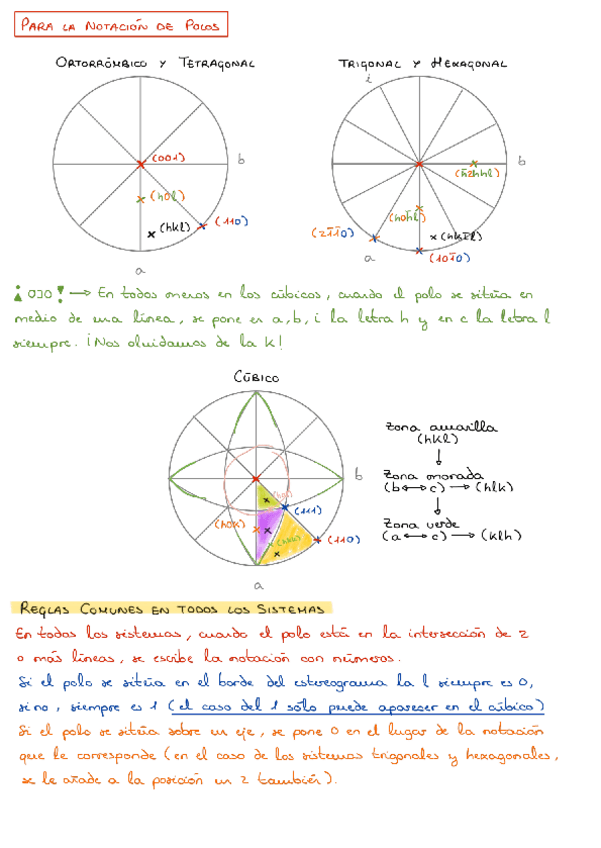 PARA LA NOTACIÓN DE POLOS
ORTORRÓMBICO Y TETRAGONAL
TRIGONAL Y HEXAGONAL
i
(001)
b
b
(h0l)
(h̄2hhl)
(hkl)
(110)
(h0h̄l)
(21̄1̄0)
(hkīl)
a
(101̄0)
a
¡OJO! → En todos menos en los cúbicos, cuando el polo se sitúa en
medio de una línea, se pone en a, b, i la letra h y en c la letra l
siempre. ¡Nos olvidamos de la k!
CÚBICO
zona amarilla
(hkl)
↓
b
zona morada
(b↔c) → (hlk)
(111)
↓
(h0k)
zona verde
(110)
(a↔c) → (klh)
a
REGLAS COMUNES EN TODOS LOS SISTEMAS
En todos los sistemas, cuando el polo está en la intersección de 2
o más líneas, se escribe la notación con números.
Si el polo se sitúa en el borde del estereograma la l siempre es 0,
si no, siempre es 1 (el caso del 1 sólo puede aparecer en el cúbico)
Si el polo se sitúa sobre un eje, se pone 0 en el lugar de la notación
que le corresponde (en el caso de los sistemas trigonales y hexagonales,
se le añade a la posición un 2 también).